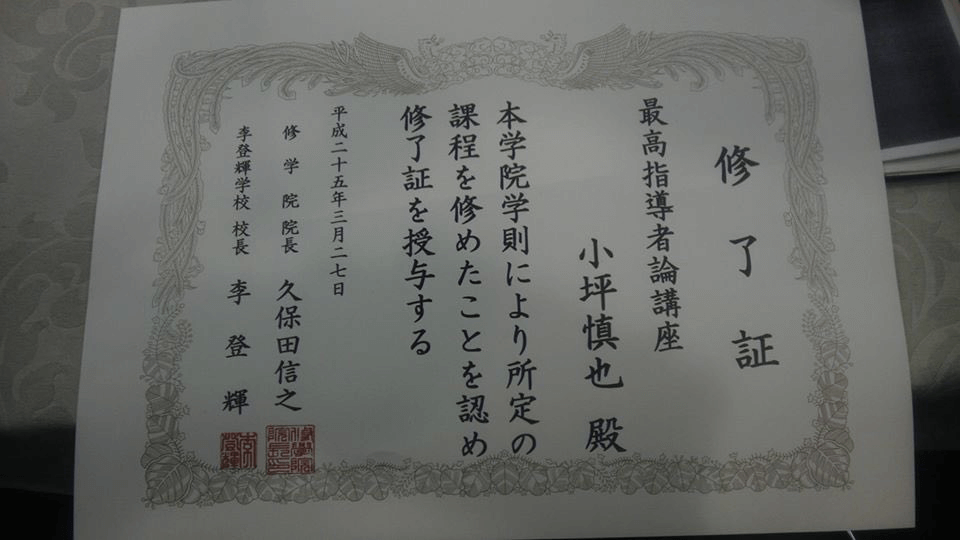 修了証
最高指導者論講座
小坪慎也 殿
本学院学則により所定の
課程を修めたことを認め
修了証を授与する
平成二十五年三月二七日
修学院 院長 久保田信之
李登輝学校 校長 李登輝
修學院院長之印
李登輝